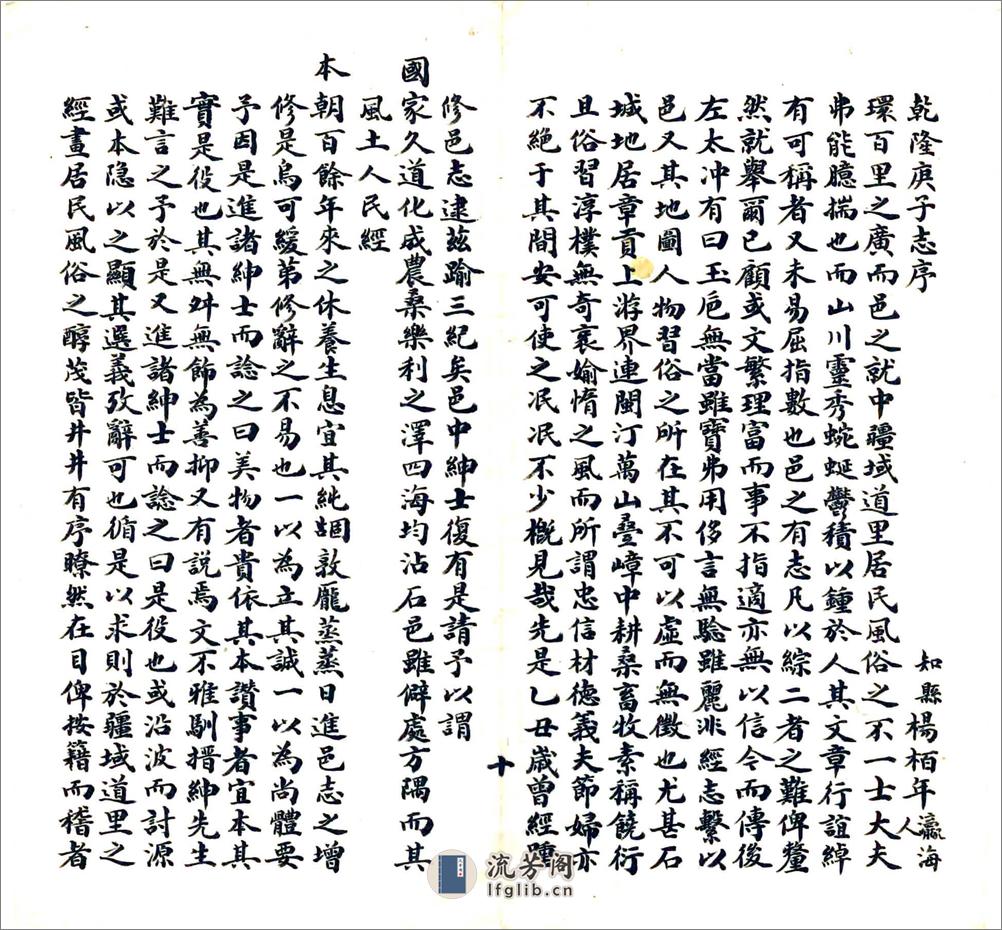 乾隆庚子志序
知縣楊栢年瀛海人
環百里之廣而邑之就中疆域道里居民風俗之不一士大夫
弗能臆揣也而山川靈秀蜿蜒鬱積以鍾於人其文章行誼綽
有可稱者又未易屈指數也邑之有志凡以綜二者之難俾釐
然就舉爾已顧或文繁理富而事不指適亦無以信今而傳後
左太冲有曰玉巵無當雖寶弗用侈言無驗雖麗非經志繫以
邑又其地圖人物習俗之所在其不可以虛而無徵也尤甚石
城地居章貢上游界連閩汀萬山疊嶂中耕桑畜牧素稱饒衍
且俗習淳樸無奇衺媮惰之風而所謂忠信材德義夫節婦亦
不絕于其間安可使之泯泯不少槪見哉先是乙丑歲曾經踵
十
修邑志逮茲踰三紀矣邑中紳士復有是請予以謂
國家久道化成農桑樂利之澤四海均沾石邑雖僻處方隅而其
風土人民經
本朝百餘年來之休養生息宜其純固敦龐蒸蒸日進邑志之增
修是烏可緩第修辭之不易也一以為立其誠一以為尚體要
予因是進諸紳士而諗之曰美物者貴依其本讚事者宜本其
實是役也其無舛無飾為善抑又有說焉文不雅馴搢紳先生
難言之予於是又進諸紳士而諗之曰是役也或沿波而討源
或本隐以之顯其選義攷辭可也循是以求則於疆域道里之
經畫居民風俗之醇茂皆井井有序瞭然在目俾按籍而稽者
流芳阁
lfglib.cn